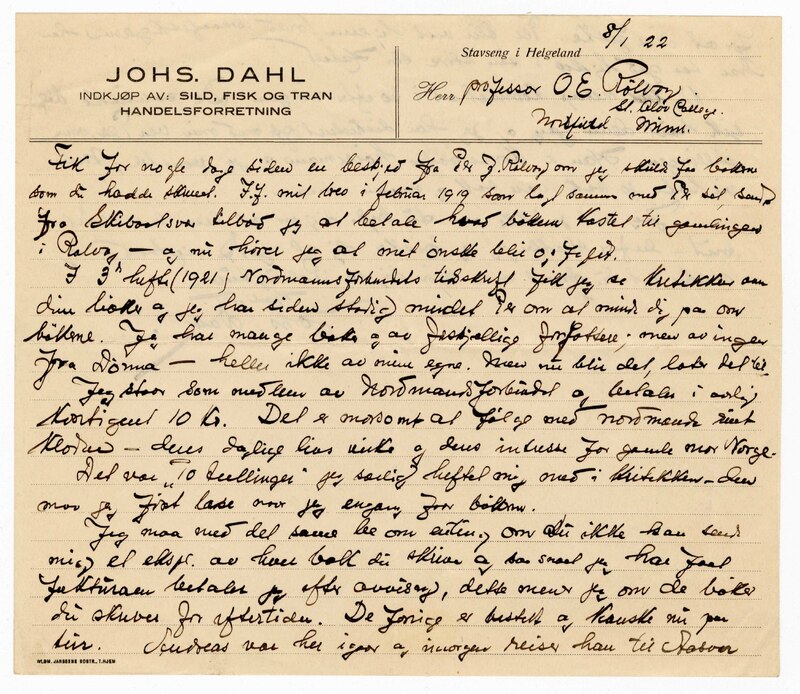 JOHS. DAHL
INDKJØP AV: SILD, FISK OG TRAN
HANDELSFORRETNING
Stavseng i Helgeland 8/1 22
Herr professor O. E. Rølvåg.
St. Olav College.
Northfield Minn.
Fik for nogle dage siden en besked fra Per J. Rølvåg om jeg skulde faa bøkene
som du hadde skrevet. mit brev i februar 1919 som laa sammen med Per sit, sendt
fra tilbød jeg at betale bøkene kostet til gamlingen
i Rølvåg — og nu hører jeg at mit ønske blir opfyldt.
I 3die hefte (1921) Nordmannsforbundets tidsskrift fik jeg se kritikken om
dine bøker og jeg har siden stadig mindet Per om at minde dig paa om
bøkene. Jeg har mange bøker av forskjellige forfattere, men av ingen
fra Dønna — heller ikke av mine egne. Men nu blir det, later det til.
Jeg staar som medlem av Nordmandsforbundet og betaler i aarlig
kontigent 10 Kr. Det er morsomt at følge med nordmænde rundt
kloden — deres daglige liv og deres intresse for gamle mor Norge.
Det var "To tullinger" jeg særlig heftet mig med i kritikken — den
maa jeg først læse naar jeg engang faar bøkene.
Jeg maa med det samme be om du ikke kan sende
mig et ekspl. av hver bok du skriver og saa snart jeg har faat
fakturaen betaler jeg efter anvisning, dette mener jeg om de bøker
du skriver for eftertiden. De forrige er bestilt og kanske nu paa
tur. Andreas var her igaar og imorgen reiser han til Aasvær
WILHM. JANSSENS BOKTR., T.HJEM